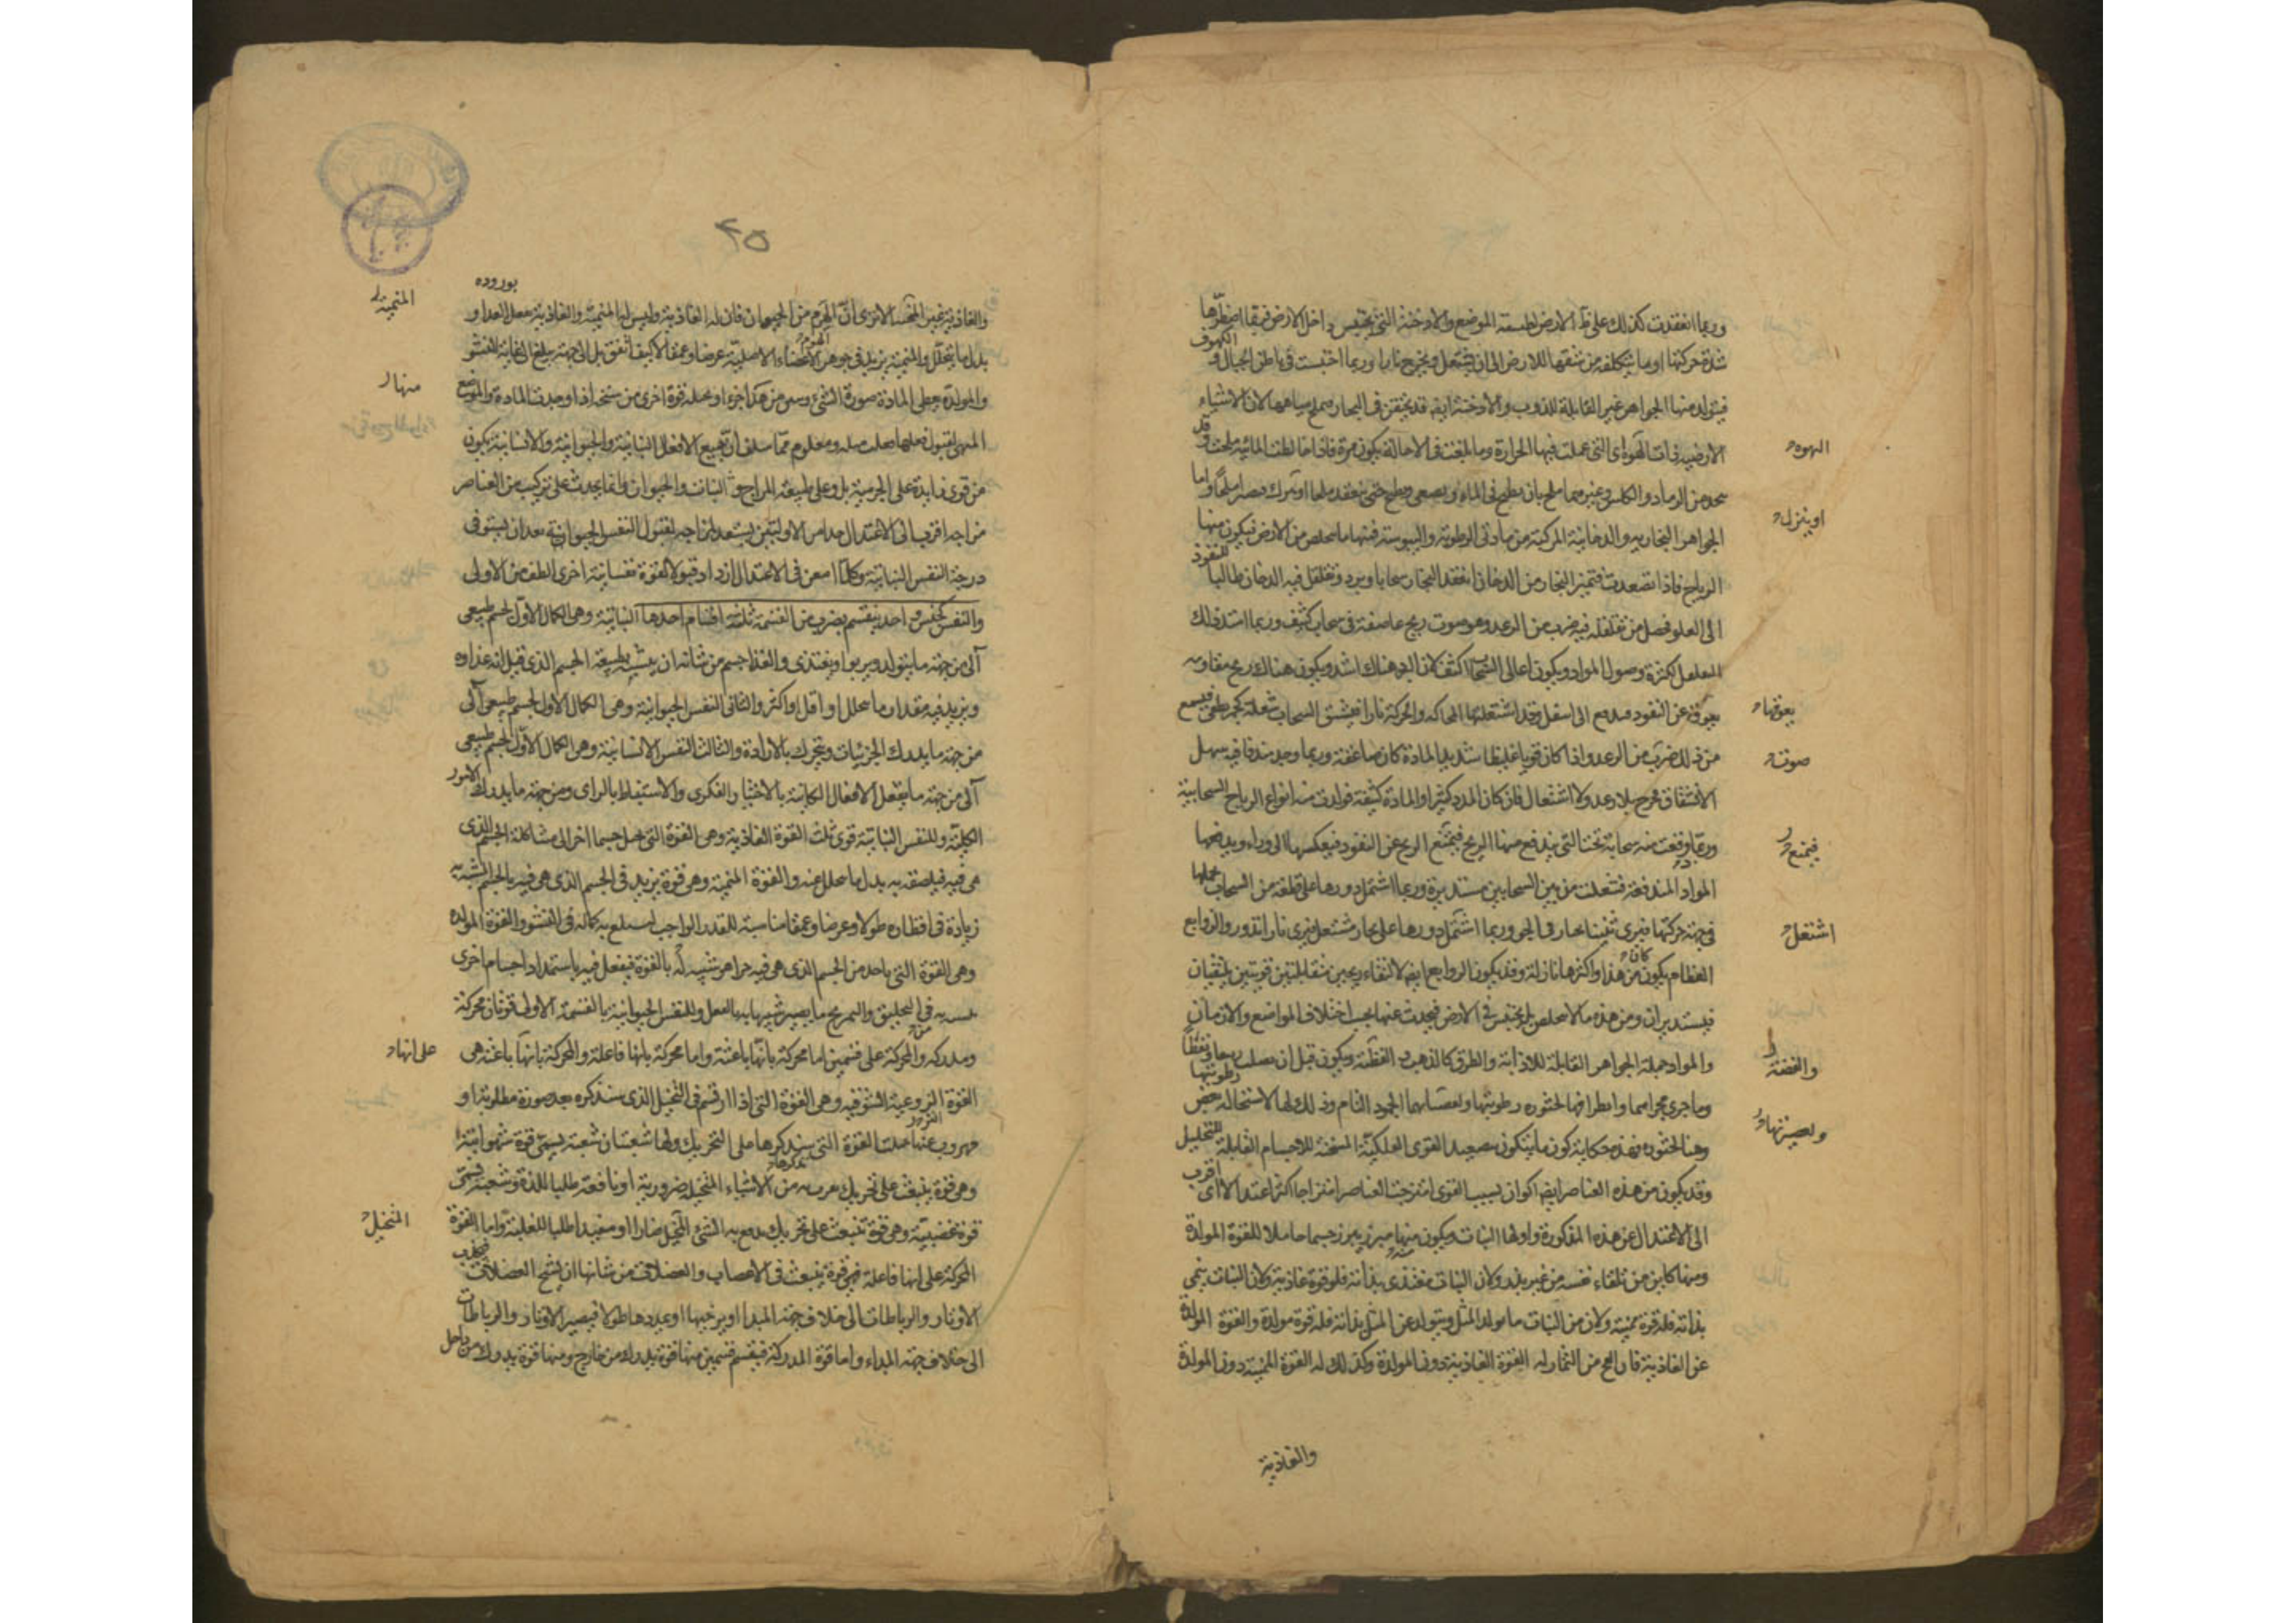 وربما انعقدت كذلك على الارض لطبيعة الموضع والادخنة التى تحتبس داخل الارض فيها اضطرها
شدة حركتها او ما يتكلفه من شقها للارض الى ان يشتعل ويخرج نارا وربما احتبست فى باطن الجبال و الكهوف
فيتولد منها الجواهر غير القابلة للذوب والادخنة ايضا قد تحتقن فى البحار فيملح مياهها لان الاشياء
الارضية التى عملت فيها الحرارة وما بلغت فى الاحالة يكون مرة فاذا خالطت المائية ملحت وقد
يتخذ من الرماد والكلس وغيرهما ملح بان يطبخ فى الماء ويصفى ويطبخ حتى ينعقد ملحا او يترك فيصير ملحا واما
الجواهر البخارية والدخانية المركبة من مادتى الرطوبة واليبوسة فمنها ما يتخلص من الارض فيكون منها
الرياح فاذا تصعدت فتميز البخار من الدخان انعقد البخار سحابا وبرد وتغلغل فيه الدخان طالبا للنفوذ
الى العلو فحصل من تغلغله فيه ضرب من الرعد وهو صوت ريح عاصفة فى سحاب كثيف وربما امتد ذلك
التغلغل لكثرة وصول المواد ويكون اعالى السحاب اكثف لان البرد هناك اشد ويكون هناك ريح مقاومة
يعوقه عن النفوذ فيندفع الى اسفل وقد اشتعلتها المحاكه والحركة نارا فيشق السحاب شعلة كجمر طفى فيسمع
من ذلك ضرب من الرعد واذا كان قويا غليظا شديد المادة كان صاعقة وربما وجد مندفعا فيه سهل
الانشقاق فخرج بلا رعد ولا اشتعال فان كان المدد كثيرا والمادة كثيفة تولدت منه انواع الرياح السحابية
وربما وقفت منه سحابة تحت التى يندفع منها الريح فيمتنع الريح عن النفوذ فيعكسها الى وراء ويدفعها
المواد المندفعة فتنفلت من بين السحابين مستديرة وربما اشتمل دورها على قطعة من السحاب
فى جهة حركتها فيرى تنينا يطير فى الجو وربما اشتمل دورها على بخار مشتعل فيرى نارا تدور والزوابع
العظام يكون من هذا واكثرها نازلة وقد يكون الزوابع ايضا لالتقاء ريحين متقابلتين قويتين يلتقيان
فيستديران ومن هذه ما لا يتخلص بل يحتبس فى الارض فيحدث عنها بحسب اختلاف المواضع والازمان
والمواد جملة الجواهر القابلة للاذابة والطرق كالذهب و الفضة ويكون قبل ان يصلب زيبقا ونفطا
وما جرى مجراهما وانطراقها لخثوره رطوبتها ولعصيانها الجمود التام
وقد يكون من هذه العناصر ايضا اكوان بسبب القوى امتزجت العناصر امتزاجا اكثر اعتدالا اى اقرب
الى الاعتدال عن هذه المذكورة واولها النبات ويكون منها مبزر يبرز جسما حاملا للقوة المولدة
ومنها كاين من تلقاء نفسه من غير بذر ولان النبات مغتذى بذاته فله قوة غاذية ولان النبات ينمى
بذاته فله قوة منمية ولان من النبات ما يولد المثل ويتولد عن المثل بذاته فله قوة مولدة والقوة المولدة
غير الغاذية فان الفج من الثمار له القوة الغاذية دون المولدة وكذلك له القوة المنمية دون المولدة
والغاذية
الهوه
او ينزل
يعوقها
صوت
فيمنع
اشتعل
والفضة
ولعصيتها
٤٥
والغاذية غير المنمية الا ترى ان الهرم من الحيوان فان له الغاذية وليس له المنمية والغاذية تفعل الغذاء و بوروده
بدل ما يتحلل والمنمية يزيد فى جوهر الاعضاء الاصلية عرضا وعمقا لا كيف اتفق بل الى جهة يبلغ الى غاية النشو
والمولدة يعطى المادة صورة الشئ
المتهى لقبول فعلها فعلت مثله ومعلوم مما سلف ان جميع الافعال النباتية والحيوانية والانسانية يكون
من قوى زايدة على الجسمية بل وعلى طبيعة المزاج ويتلو النبات والحيوان وانما يحدث على تركيب من العناصر
مزاجه اقرب الى الاعتدال جدا من الاوليين يستعد مزاجه لقبول النفس الحيوانية بعد ان يستوفى
درجة النفس النباتية وكلما امعن فى الاعتدال ازداد قبولا لقوة نفسانية اخرى الطف من الاولى
والنفس كجنس واحد ينقسم بضرب من القسمة ثلثة اقسام احدها النباتية وهى الكمال الاول لجسم طبيعى
آلى من جهة ما يتولد ويربو او يغتذى والغذا جسم من شانه ان يتشبه بطبيعة الجسم الذى قيل انه غذاوه
ويزيد فيه مقدار ما يتحلل او اقل او اكثر والثانى النفس الحيوانية وهى الكمال الاول لجسم طبيعى آلى
من جهة ما يدرك الجزئيات ويتحرك بالارادة والثالث النفس الانسانية وهى الكمال الاول لجسم طبيعى
آلى من جهة ما يفعل الافعال الكاينة بالاختيار الفكرى والاستنباط بالراى ومن جهة ما يدرك الامور
الكلية وللنفس النباتية قوى ثلث القوة الغاذية وهى القوة التى تحيل جسما اخر الى مشاكلة الجسم الذى
هى فيه فيلصقه به بدل ما يتحلل عنه والقوة المنمية وهى قوة يزيد فى الجسم الذى هى فيه بالجسم المتشبه به
زيادة فى اقطاره طولا وعرضا وعمقا مناسبة للقدر الواجب ليبلغ به كماله فى النشو والقوة المولدة
وهى القوة التى ياخذ من الجسم الذى هى فيه جزا هو شبيه له بالقوة فيفعل فيه باستمداد اجسام اخرى
يتشبه به فى التخليق والتمزيج ما يصير شبيها به بالفعل وللنفس الحيوانية بالقسمة الاولى قوتان محركة
ومدركه والمحركة على قسمين اما محركة بانها باعثة واما محركة بانها فاعلة والمحركة بانها باعثة هى
القوة النزوعية الشوقيه وهى القوة التى اذا ارتسم فى التخيل الذى سنذكره بعد صورة مطلوبة او
مهروب عنها حملت القوة التى سنذكرها على التحريك ولها شعبتان شعبة يسمى قوة شهوانية
وهى قوة ينبعث على تحريك يقرب به من الاشياء المتخيله ضرورية او نافعة طلبا للذة وشعبة يسمى
قوة غضبية وهى قوة تنبعث على تحريك يدفع به الشئ المتخيل ضارا او مفسدا طلبا للغلبة واما القوة
المحركة على انها فاعلة فهى قوة ينبعث فى الاعصاب والعضلات من شانها ان يشنج العضلات فيجذب
الاوتار والرباطات الى خلاف جهة المبدا او يرخيها او يمددها طولا فيصير الاوتار والرباطات
الى خلاف جهة المبداء واما قوة المدركة فينقسم قسمين منها قوة يدرك من خارج ومنها قوة يدرك من داخل
المنمية
منها
على انها
المتخيل